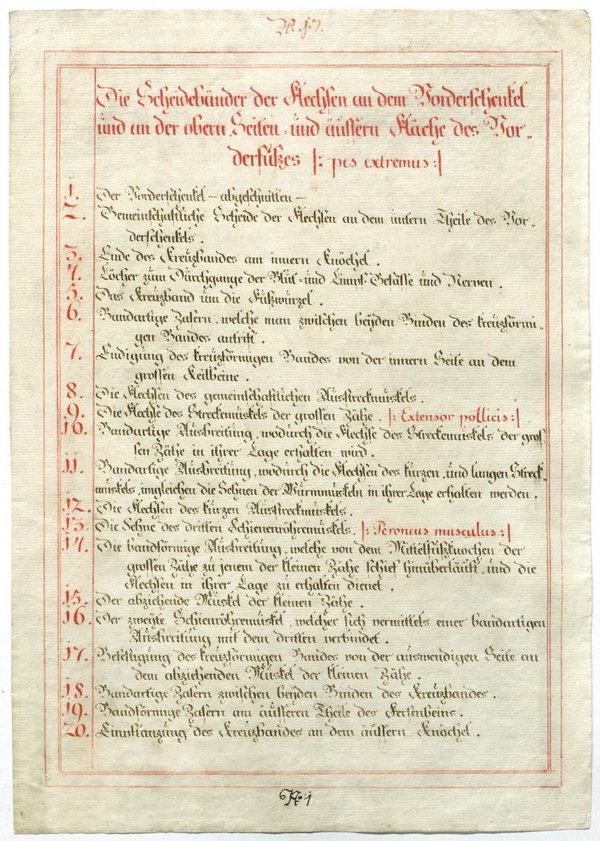 Die Scheidebänder der Flechsen an dem Vorderschenkel
und an der obern Seiten- und äussern Fläche des Vor-
derfußes |: pes extremus :|
1. Der Vorderschenkel — abgeschnitten —
2. Gemeinschaftliche Scheide der Flechsen an dem untern Theile des Vor-
derschenkels.
3. Ende des Kreuzbandes am innern Knöchel.
4. Löcher zum Durchgange der Blut- und Limpf-Gefässe und Nerven.
5. Das Kreuzband um die Fußwurzel.
6. Bandartige Zasern, welche man zwischen beyden Binden des kreuzförmi-
gen Bandes antrift.
7. Endigung des kreuzförmigen Bandes von der innern Seite an dem
grossen Keilbeine.
8. Die Flechsen des gemeinschaftlichen Ausstreckmuskels.
9. Die Flechse des Streckmuskels der grossen Zähe. |: Extensor pollicis :|
10. Bandartige Ausbreitung, wodurch die Flechse des Streckemuskels der gros-
sen Zähe in ihrer Lage erhalten wird.
11. Bandartige Ausbreitung, wodurch die Flechsen des kurzen, und langen Streck-
muskels, imgleichen die Sehnen der Wurmmuskeln in ihrer Lage erhalten werden.
12. Die Flechsen des kurzen Ausstreckmuskels.
13. Die Sehne des dritten Schienenröhremuskels. |: Peroneus musculus :|
14. Die bandförmige Ausbreitung, welche von dem Mittelfußknochen der
grossen Zähe zu jenem der kleinen Zähe schief hinüberläuft, und die
Flechsen in ihrer Lage zu erhalten dienet.
15. Der abziehende Muskel der kleinen Zähe.
16. Der zweyte Schienröhremuskel, welcher sich vermittels einer bandartigen
Ausbreitung mit dem dritten verbindet.
17. Befestigung des kreuzförmigen Bandes von der auswendigen Seite an
dem abziehenden Muskel der kleinen Zähe.
18. Bandartige Zasern zwischen beyden Binden des Kreuzbandes.
19. Bandförmige Zasern am äusseren Theile des Fersenbeins.
20. Einpflanzung des Kreuzbandes an dem äussern Knöchel.